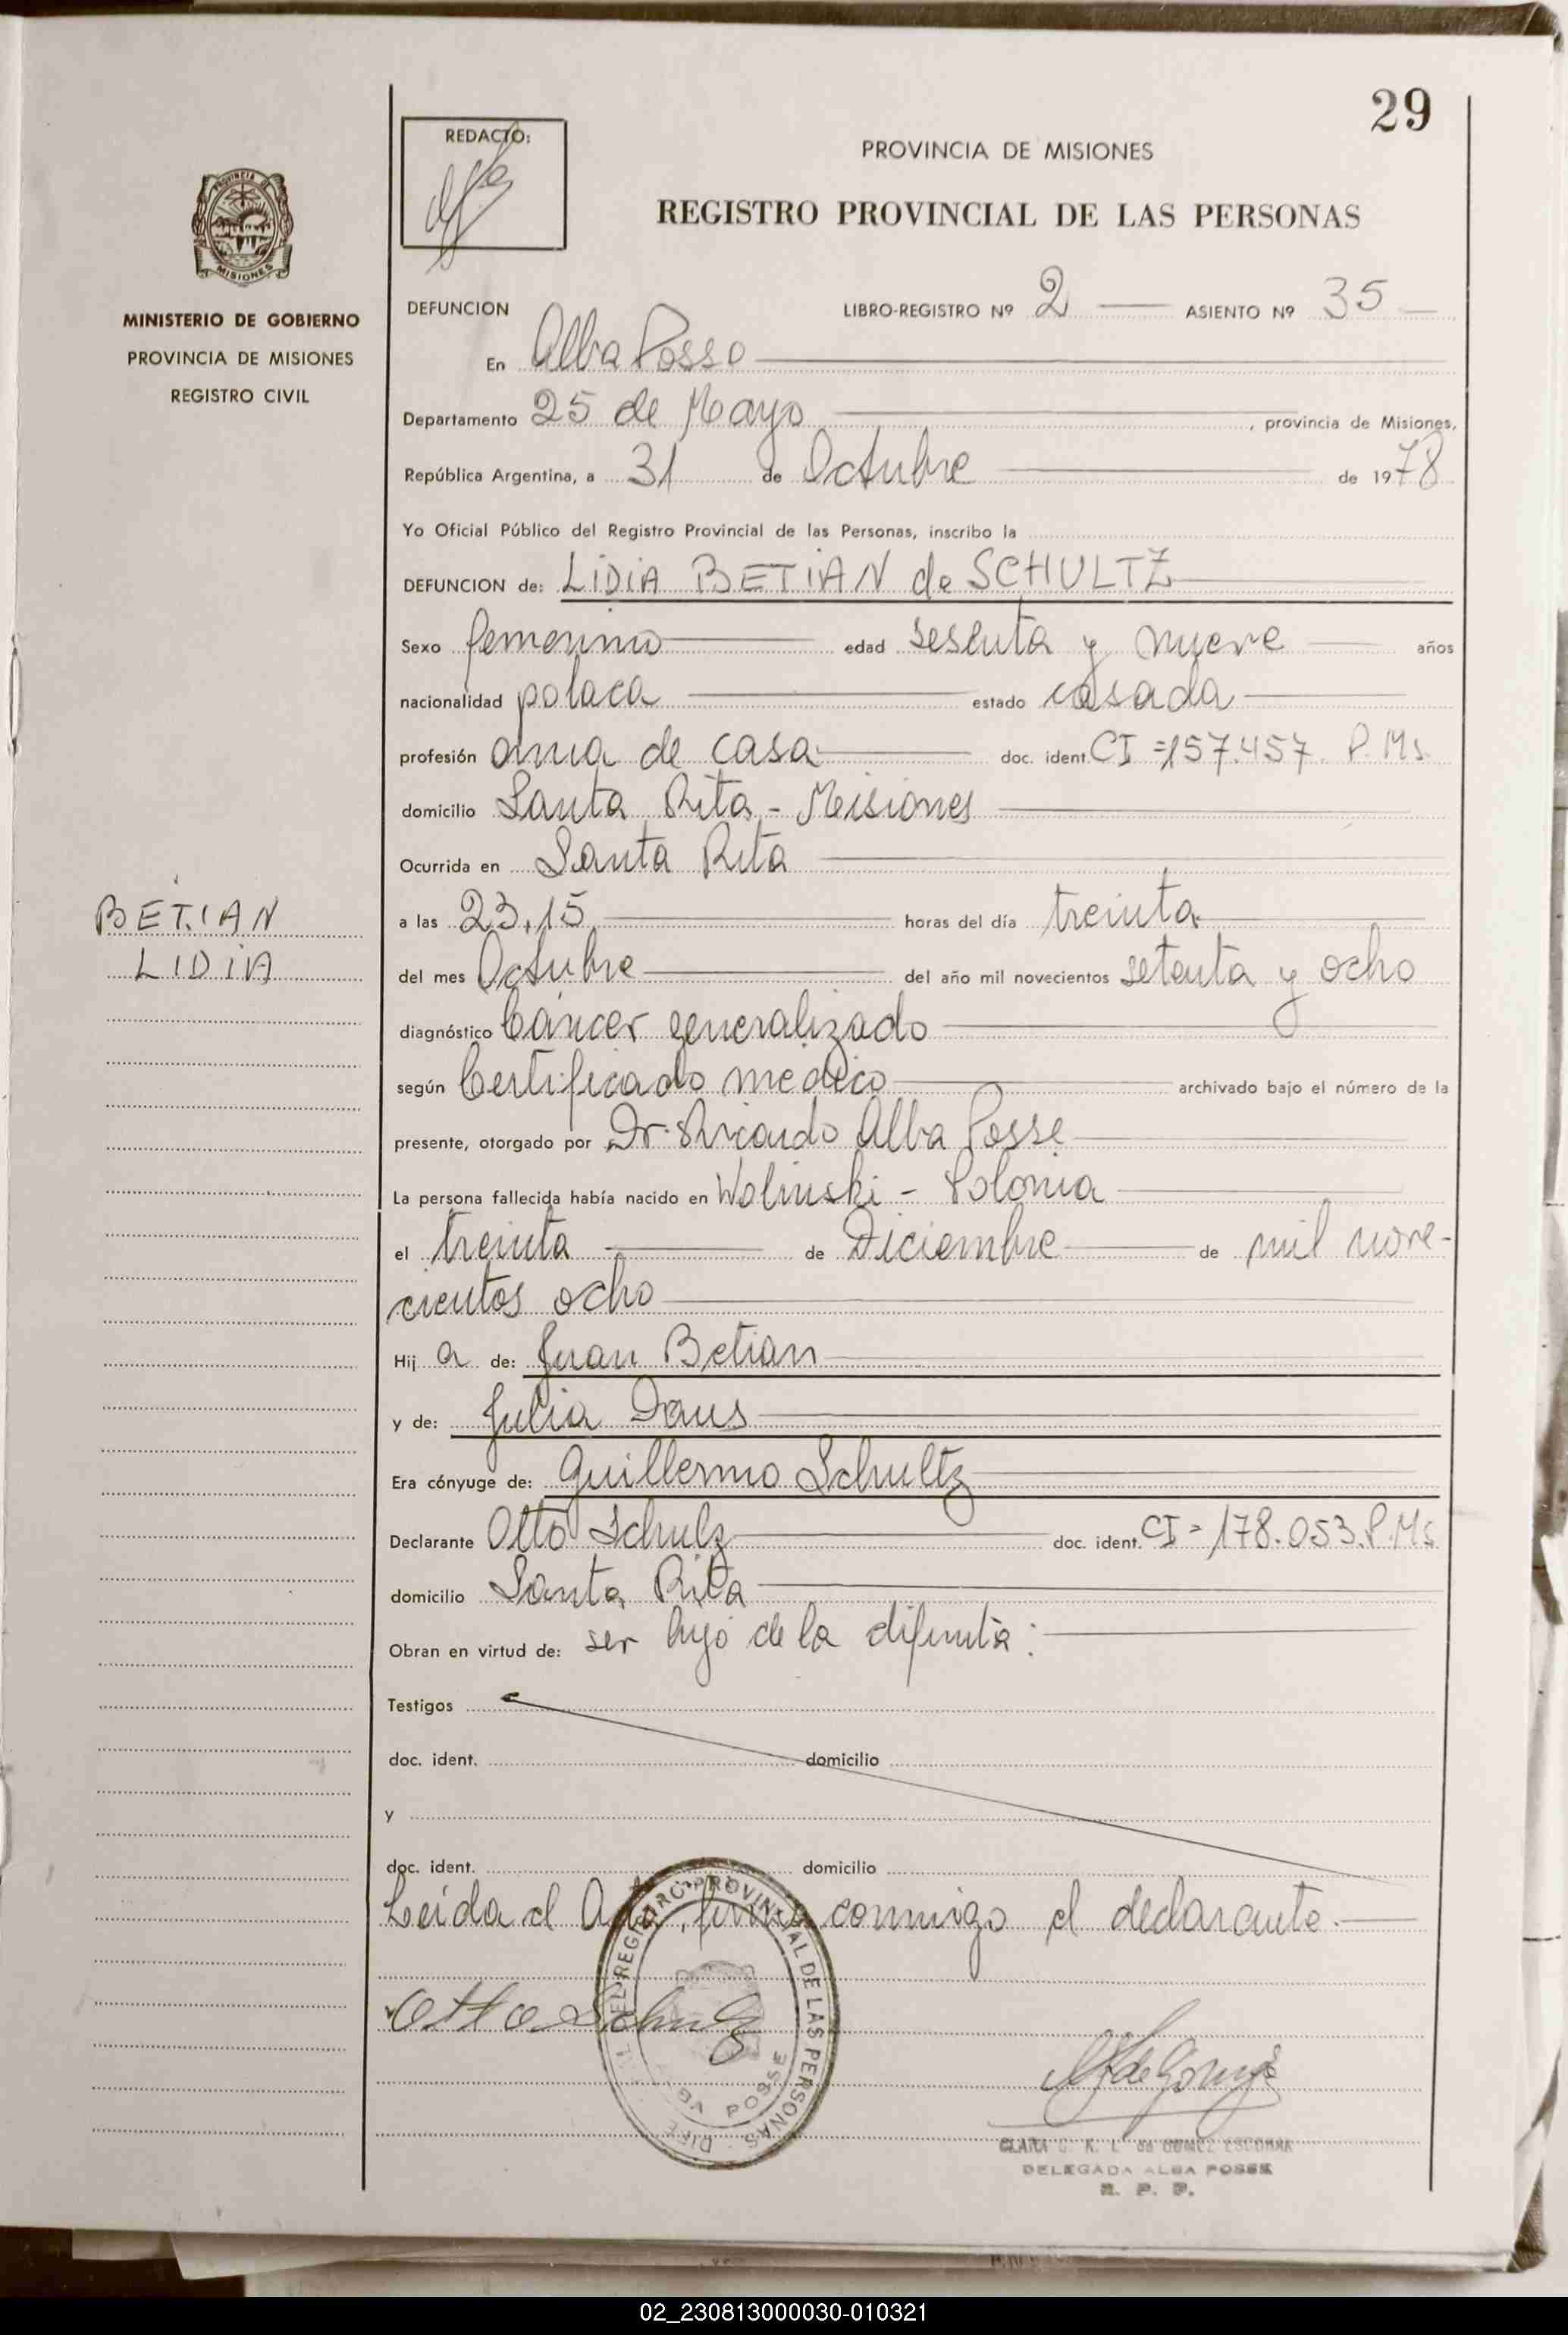 29
REDACTO:
PROVINCIA DE MISIONES
REGISTRO PROVINCIAL DE LAS PERSONAS
PROVINCIA DE
MISIONES
MINISTERIO DE GOBIERNO
PROVINCIA DE MISIONES
REGISTRO CIVIL
DEFUNCION LIBRO-REGISTRO Nº 2 ASIENTO Nº 35
En Alba Posse
Departamento 25 de Mayo, provincia de Misiones,
República Argentina, a 31 de Octubre de 1978
Yo Oficial Público del Registro Provincial de las Personas, inscribo la
DEFUNCION de: LIDIA BETIAN de SCHULTZ
Sexo femenino edad sesenta y nueve años
nacionalidad polaca estado casada
profesión ama de casa doc. ident. CI = 157.457. P.Ms.
domicilio Santa Rita - Misiones
Ocurrida en Santa Rita
BETIAN
LIDIA
a las 23,15 horas del día treinta
del mes Octubre del año mil novecientos setenta y ocho
diagnóstico Cáncer generalizado
según Certificado médico archivado bajo el número de la
presente, otorgado por Dr. Ricardo Alba Posse
La persona fallecida había nacido en Wolinski - Polonia
el treinta de Diciembre de mil nove-
cientos ocho
Hij a de: Juan Betian
y de: Julia Daus
Era cónyuge de: Guillermo Schultz
Declarante Otto Schulz doc. ident. CI = 178.053. P.Ms.
domicilio Santa Rita
Obran en virtud de: ser hijo de la difunta:
Testigos
doc. ident. domicilio
y
doc. ident. domicilio
Leída el Acta, firma conmigo el declarante.
Otto Schulz
REGISTRO PROVINCIAL DE LAS PERSONAS
POSSE
CLARA de GOMEZ
DELEGADA ALBA POSSE
R. P. P.
02_230813000030-010321